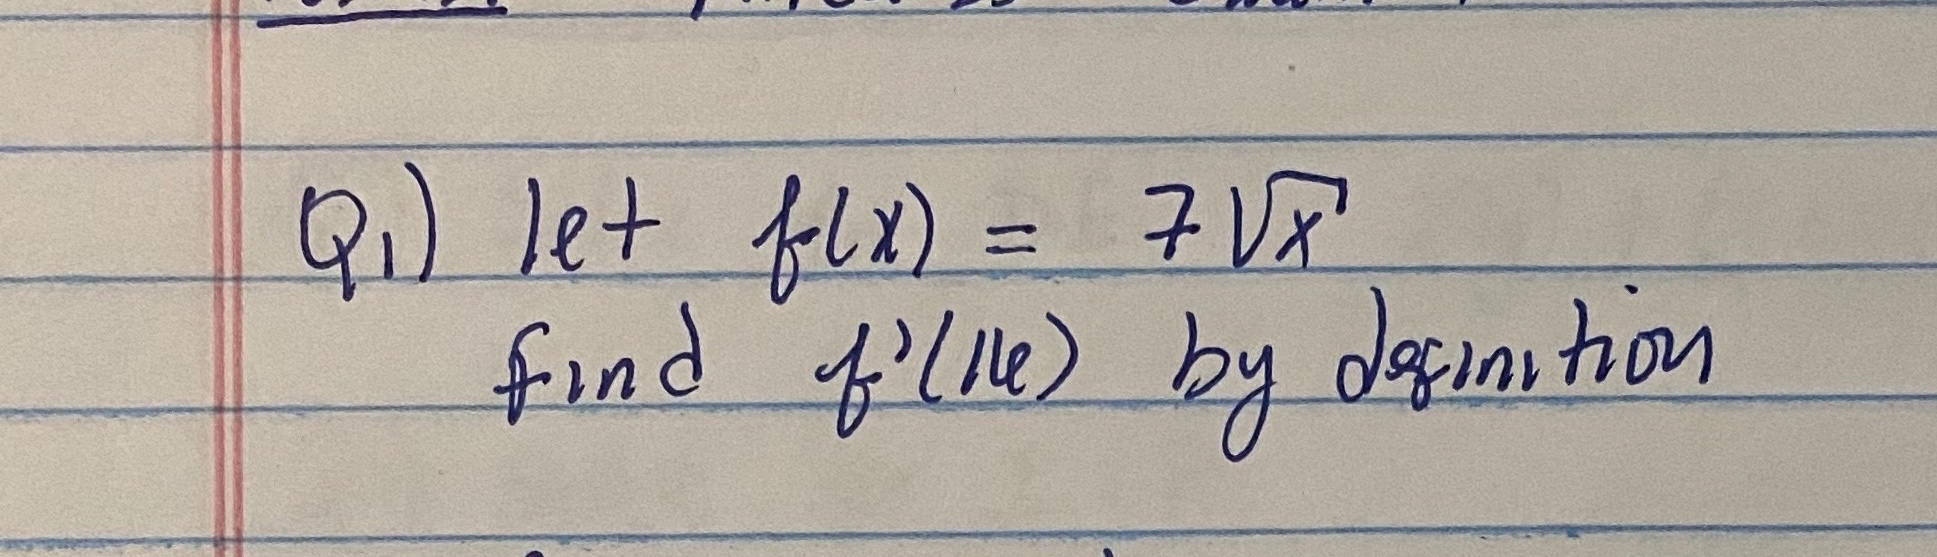 Q1) let f(x) = 7√x
find f'(16) by definition